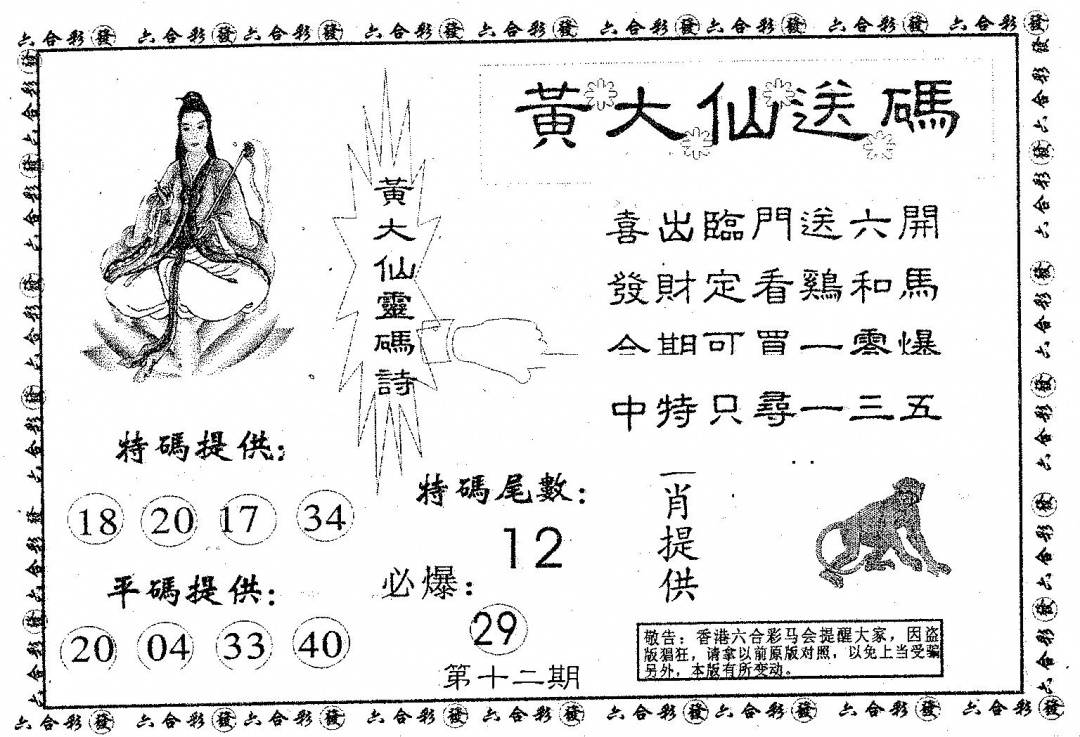 六合彩發 六合彩發六合彩發 六合彩發 六合彩發 六合彩發六合彩發 六合彩發 六合彩發
黃大仙送碼
黃大仙靈碼詩
喜出臨門送六開
發財定看鷄和馬
今期可買一零爆
中特只尋一三五
特碼提供:
18 20 17 34
特碼尾數:
12
平碼提供:
20 04 33 40
必爆:
29
第十二期
一肖提供
敬告:香港六合彩马会提醒大家,因盗
版猖狂,请拿以前原版对照,以免上当受骗
另外,本版有所变动。
六合彩發 六合彩發六合彩發 六合彩發 六合彩發 六合彩發六合彩發 六合彩發 六合彩發